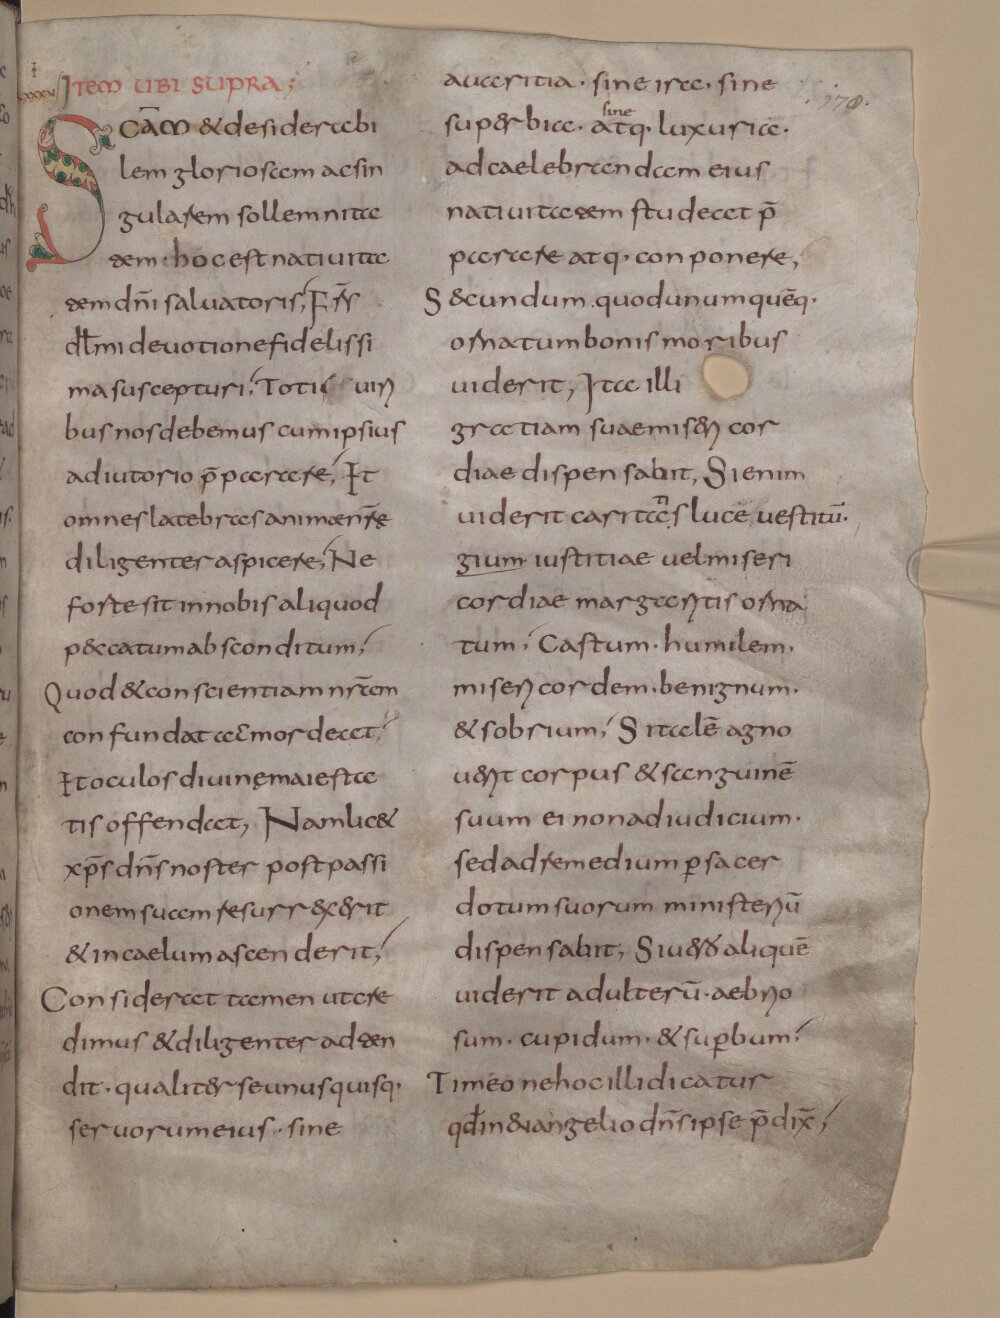 ITEM UBI SUPRA;
SCĀM & desiderabi
lem gloriosam ac sin
gularem sollemnita
tem · hoc est natiuita
tem dn̄i saluatoris; Fr̄s
dl̄mi deuotione fidelissi
ma suscepturi; Totis uiri
bus nos debemus cum ipsius
adiutorio p̄parare; Et
omnes latebras animae nr̄e
diligenter aspicere; Ne
forte sit in nobis aliquod
p&catum absconditum;
Quod & conscientiam nr̄am
confundat ac mordeat;
Et oculos diuinę maiesta
tis offendat; Nam lic&
xp̄s dn̄s noster post passi
onem suam resurrexerit
& in caelum ascenderit;
Considerat tamen ut cre
dimus & diligenter adten
dit · qualiter se unusquisq·
seruorum eius · sine
auaritia · sine ira · sine
superbia · sine atq· luxuria ·
ad caelebrandam eius
natiuitatem studeat p̄
parare atq· conponere;
S&cundum quod unumquēq·
ornatum bonis moribus
uiderit; Ita illi
gratiam suae miseri cor
diae dispensabit; Si enim
uiderit caritatis luce uestitū·
gium iustitiae uel miseri
cordiae margaritis orna
tum; Castum · humilem ·
misericordem · benignum ·
& sobrium; S italē agno
uerit corpus & sanguinē
suum ei non ad iudicium ·
sed ad remedium per sacer
dotum suorum ministeriū
dispensabit; Si uero aliquē
uiderit adulterū · aebrio
sum · cupidum · & superbum;
Timeo ne hoc illi dicatur
qđ in euangelio dn̄s ipse p̄dix̄;
178.